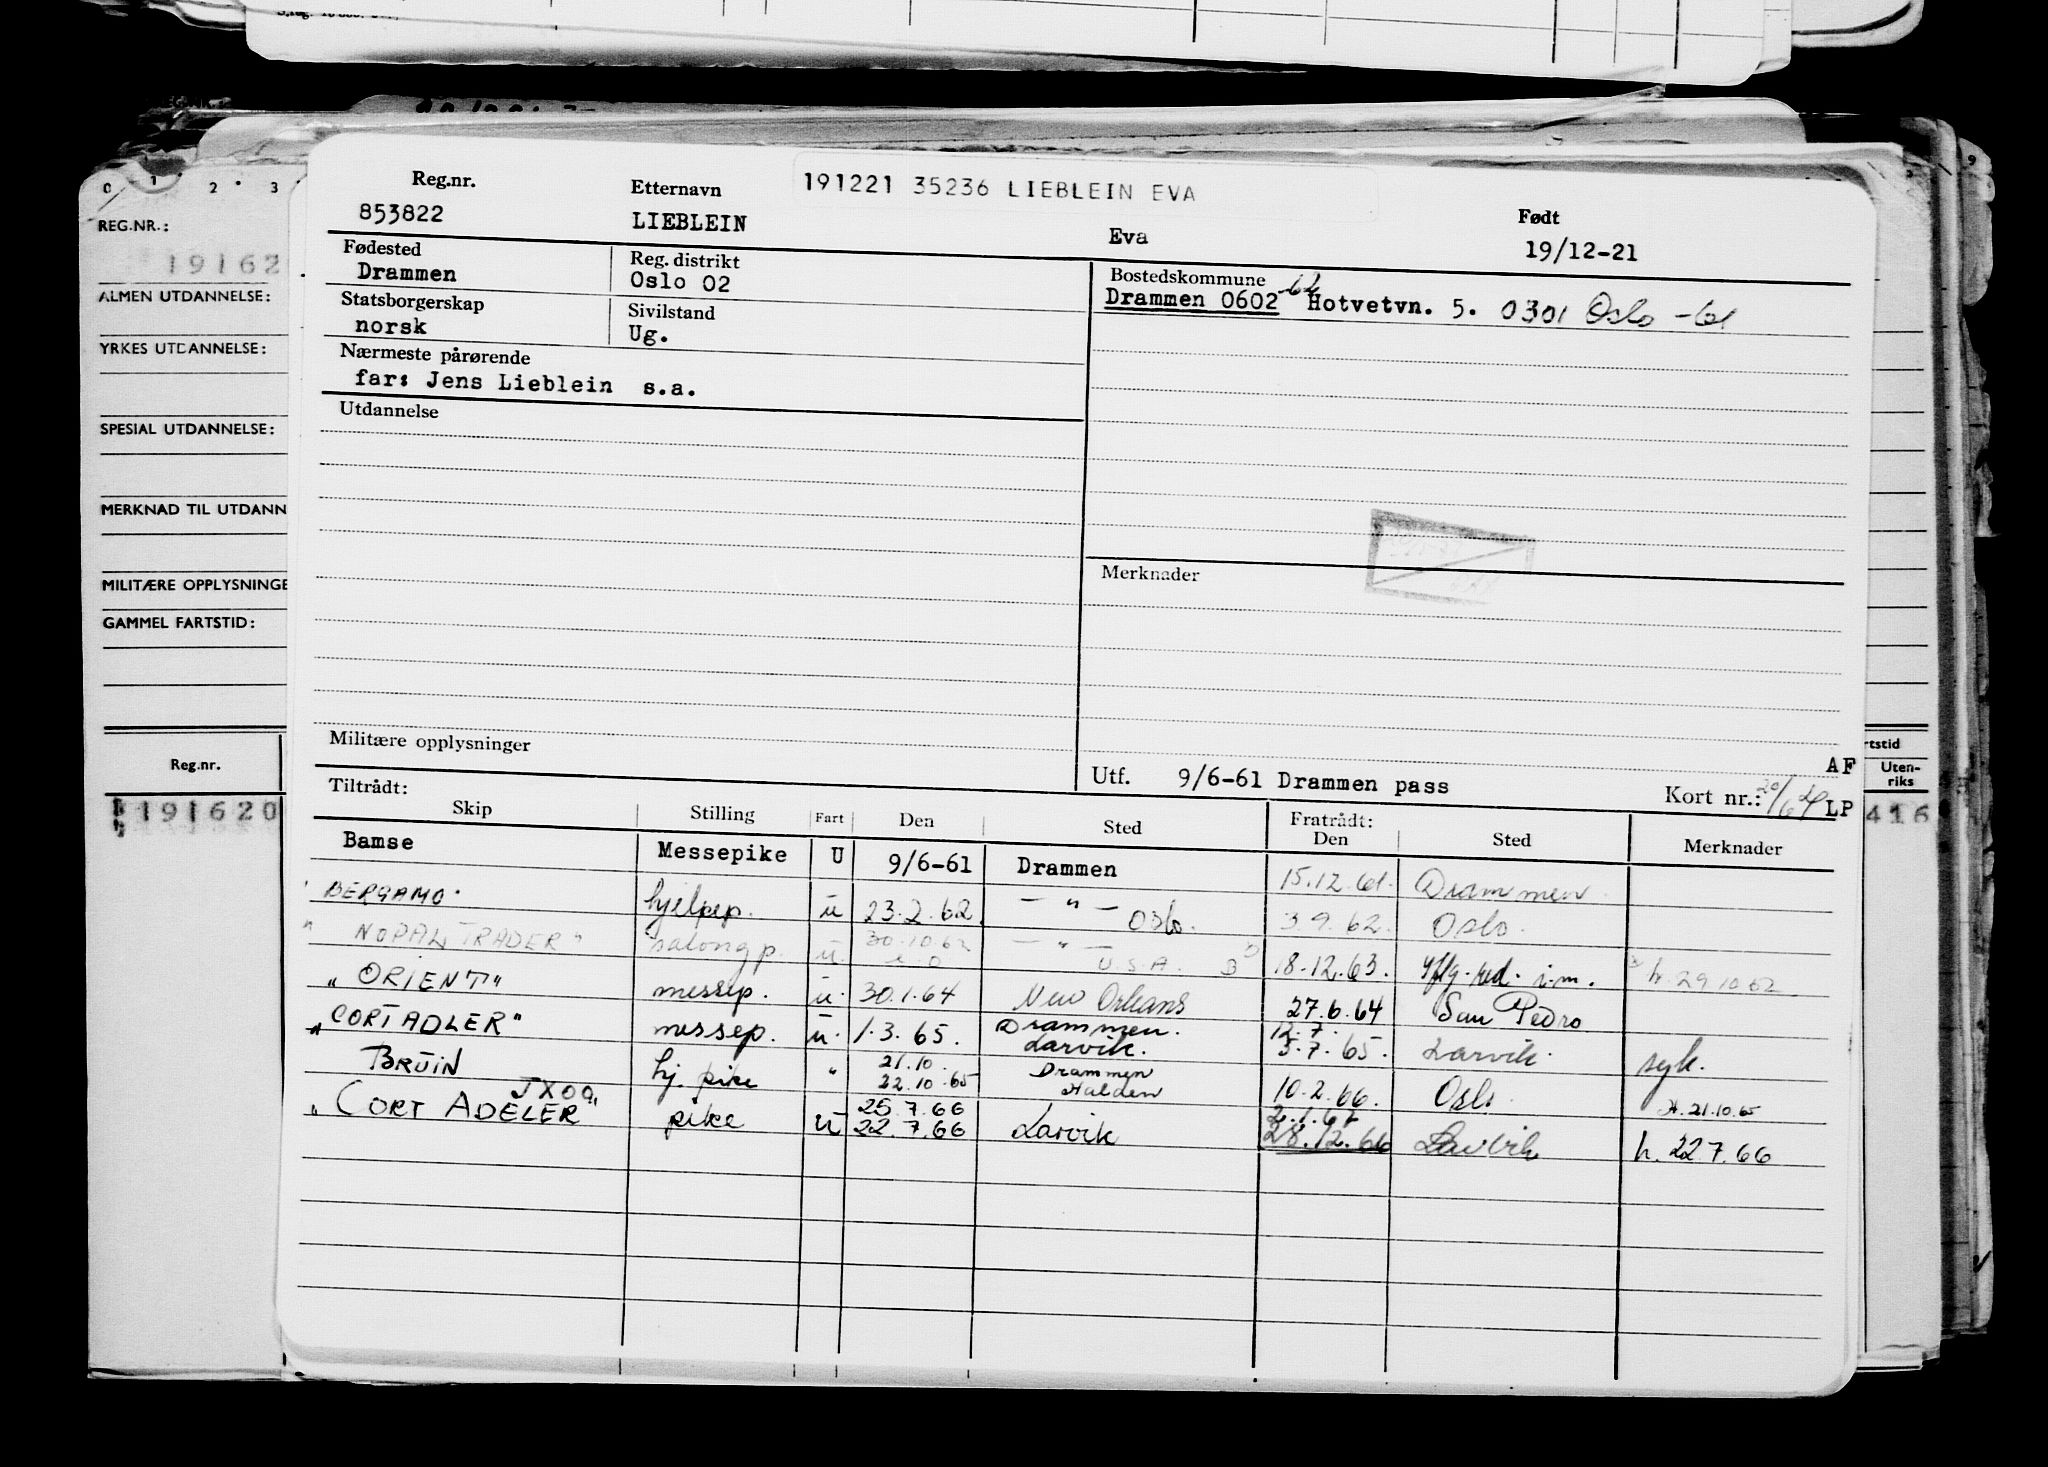 191221 35236 LIEBLEIN EVA
Reg.nr. Etternavn Født
853822 LIEBLEIN Eva 19/12-21
Fødested Reg. distrikt Bostedskommune
Drammen Oslo 02 Drammen 0602 -62 Hotvetvn. 5. 0301 Oslo -61
Statsborgerskap Sivilstand
norsk Ug.
Nærmeste pårørende
far: Jens Lieblein s.a.
Utdannelse
Merknader
Militære opplysninger
Utf. 9/6-61 Drammen pass Kort nr.: AF
LP
Tiltrådt: Fratrådt:
Skip Stilling Fart Den Sted Den Sted Merknader
Bamse Messepike U 9/6-61 Drammen 15.12.61. Drammen
"BERGAMO" hjelpep. u 23.2.62. — " — Oslo. 3.9.62. Oslo.
" NOPAL TRADER" salongp. u. 30.10.62 — " — U.S.A. 18.12.63. i.m. h. 29.10.62
"ORIENT" messep. u. 30.1.64 New Orleans 27.6.64 San Pedro
"CORT ADLER" messep. u. 1.3.65. Drammen. Larvik. 12.7. 5.7.65. Larvik. syk.
BRUIN hj. pike " 21.10. 22.10.65 Drammen Halden 10.2.66. Oslo. h. 21.10.65
JXOQ
"CORT ADELER" pike u 25.7.66 22.7.66 Larvik 2.1.67 28.12.66 Larvik h. 22.7.66
0 1 2 3
REG.NR.:
19162
ALMEN UTDANNELSE:
YRKES UTDANNELSE:
SPESIAL UTDANNELSE:
MERKNAD TIL UTDANN
MILITÆRE OPPLYSNINGE
GAMMEL FARTSTID:
Reg.nr.
191620
rtstid
Uten-
riks
416
9